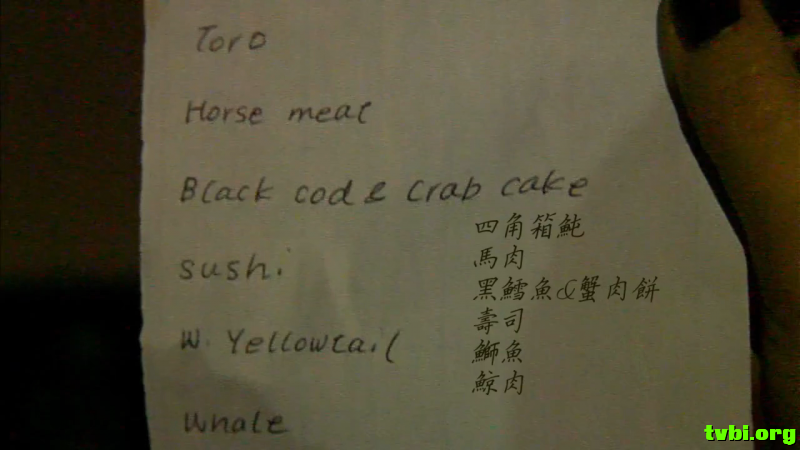 Toro
Horse meat
Black cod & crab cake
sushi
W. Yellowtail
Whale
四角箱魨
馬肉
黑鱈魚&蟹肉餅
壽司
鰤魚
鯨肉
tvbi.org